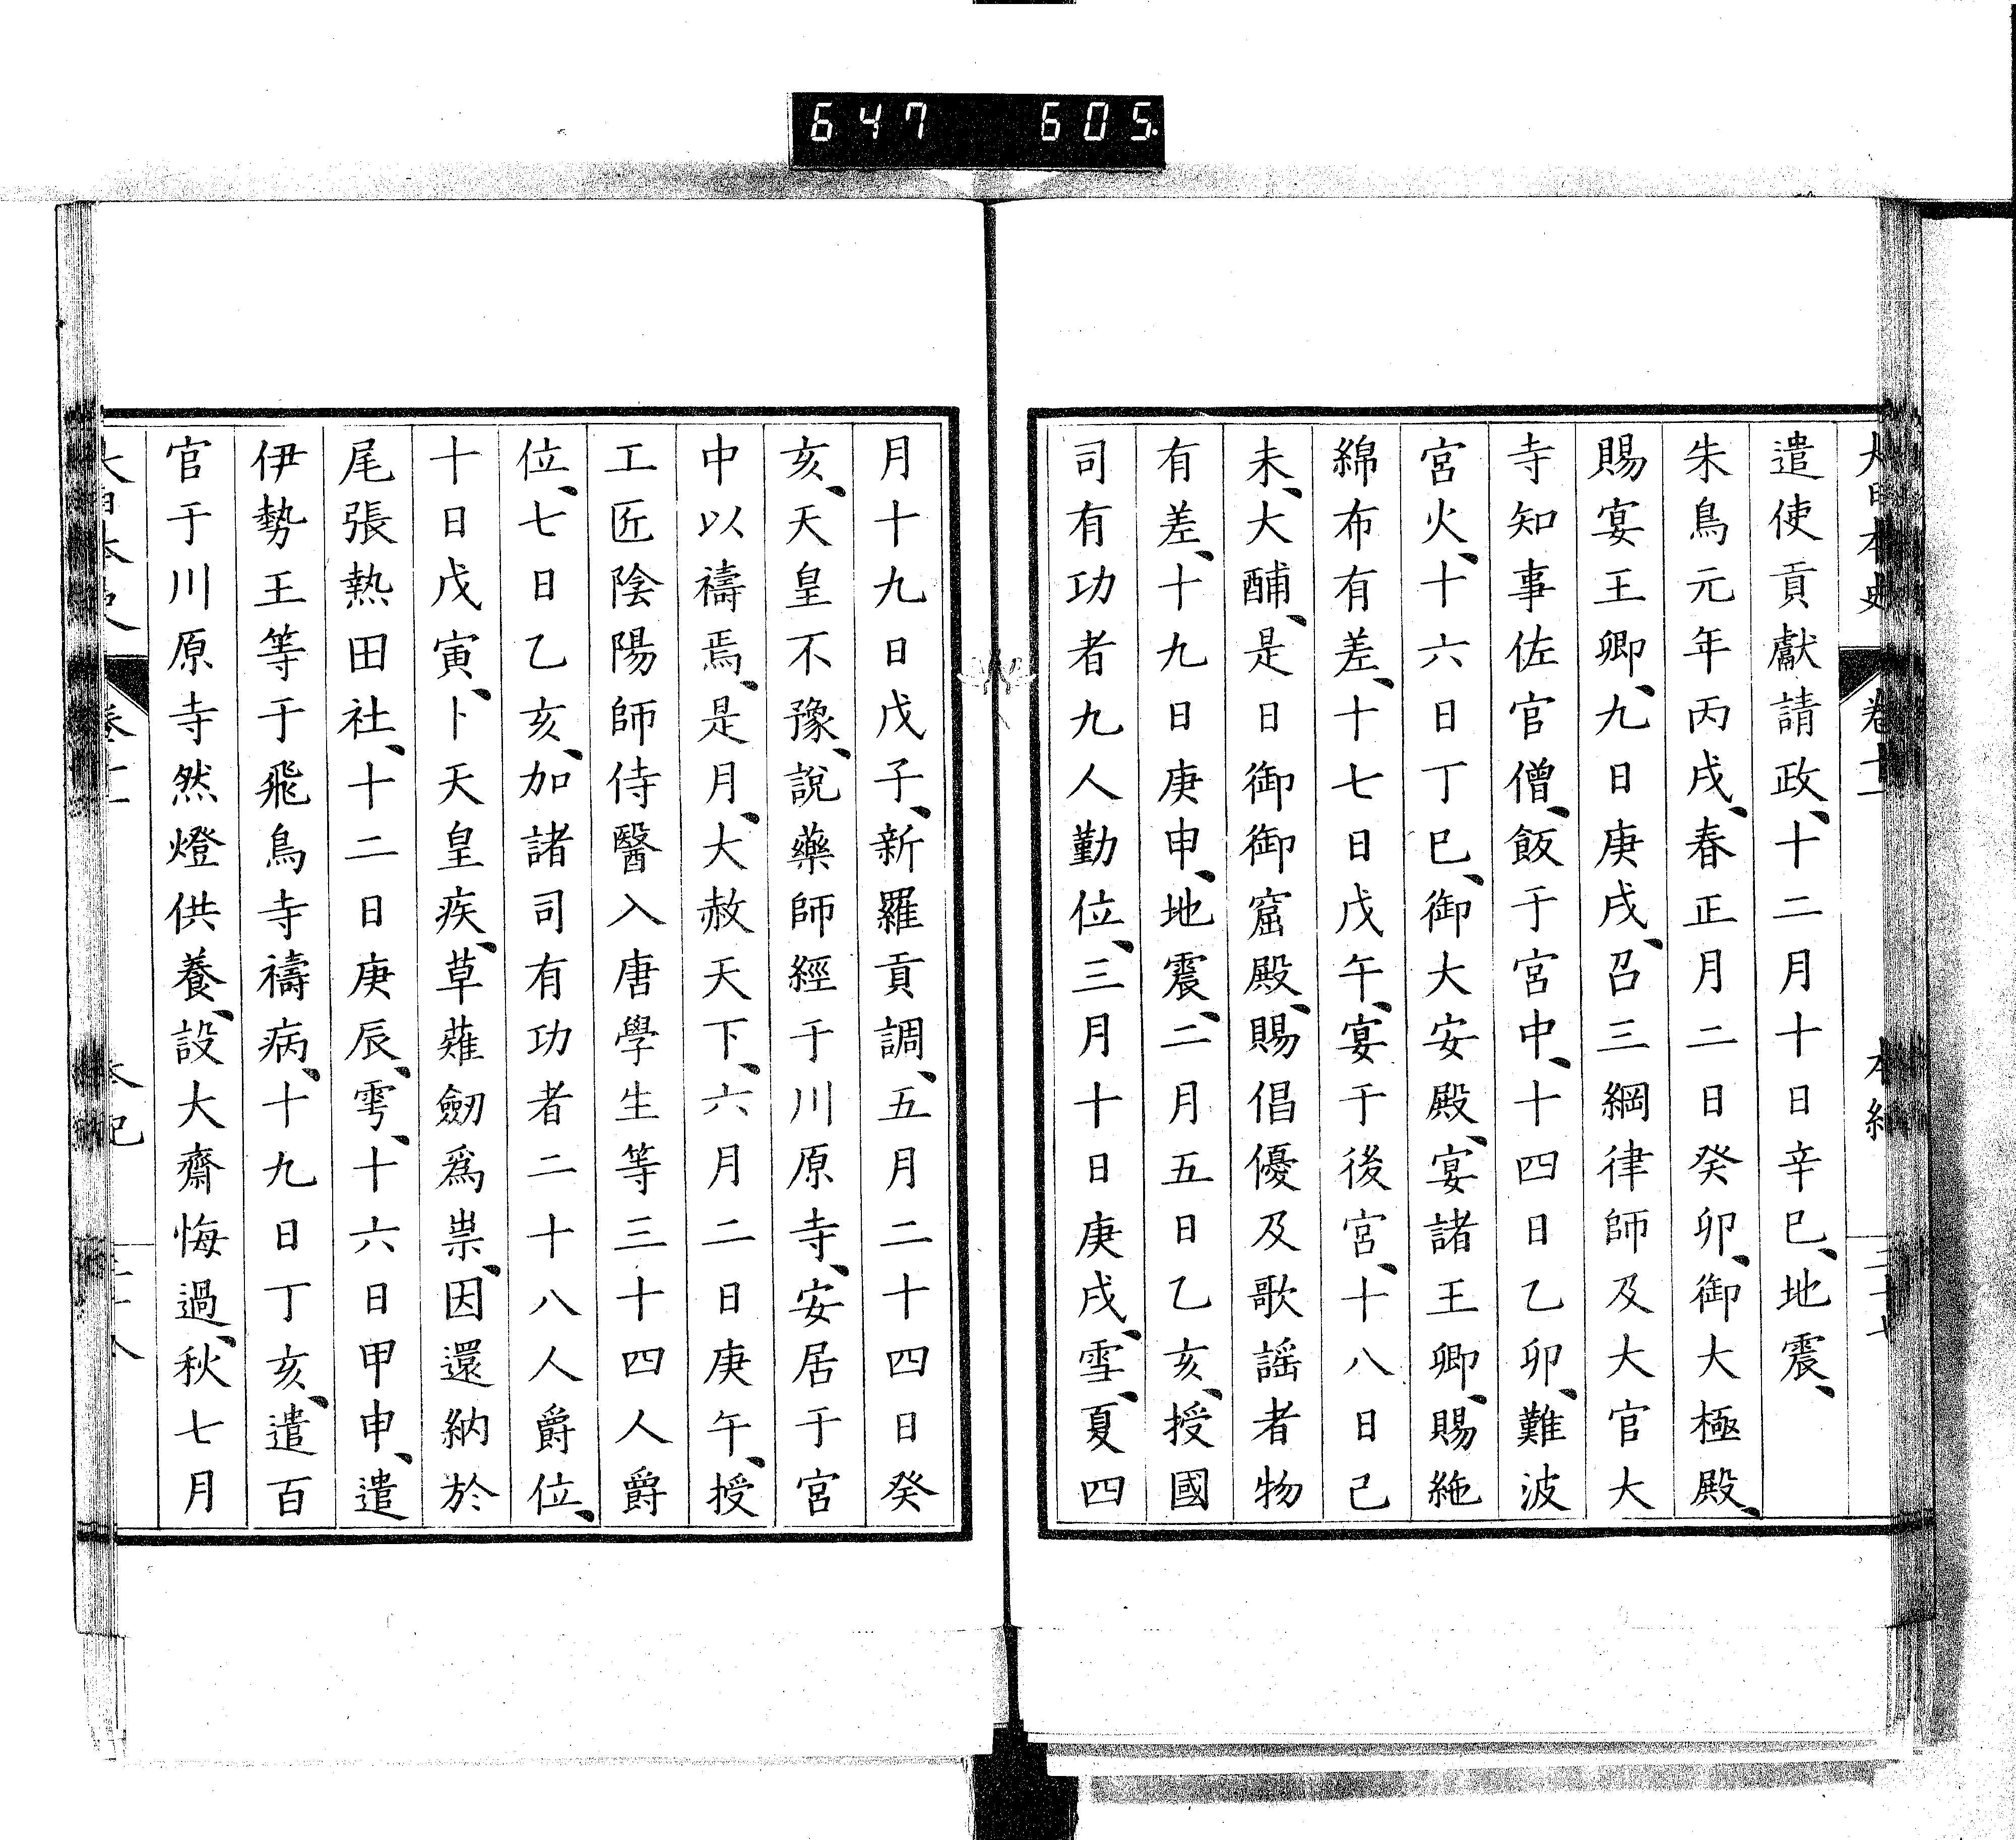 647 605
大日本史 卷十一 本紀 二十七
遣使貢獻請政、十二月十日辛巳、地震、
朱鳥元年丙戌、春正月二日癸卯、御大極殿、
賜宴王卿、九日庚戌、召三綱律師及大官大
寺知事佐官僧、飯于宮中、十四日乙卯、難波
宮火、十六日丁巳、御大安殿、宴諸王卿、賜絁
綿布有差、十七日戊午、宴于後宮、十八日己
未、大酺、是日御御窟殿、賜倡優及歌謡者物
有差、十九日庚申、地震、二月五日乙亥、授國
司有功者九人勤位、三月十日庚戌、雪、夏四
月十九日戊子、新羅貢調、五月二十四日癸
亥、天皇不豫、說藥師經于川原寺、安居于宮
中以禱焉、是月、大赦天下、六月二日庚午、授
工匠陰陽師侍醫入唐學生等三十四人爵
位、七日乙亥、加諸司有功者二十八人爵位、
十日戊寅、卜天皇疾、草薙劒爲祟、因還納於
尾張熱田社、十二日庚辰、雩、十六日甲申、遣
伊勢王等于飛鳥寺禱病、十九日丁亥、遣百
官于川原寺然燈供養、設大齋悔過、秋七月
大日本史 卷十一 本紀